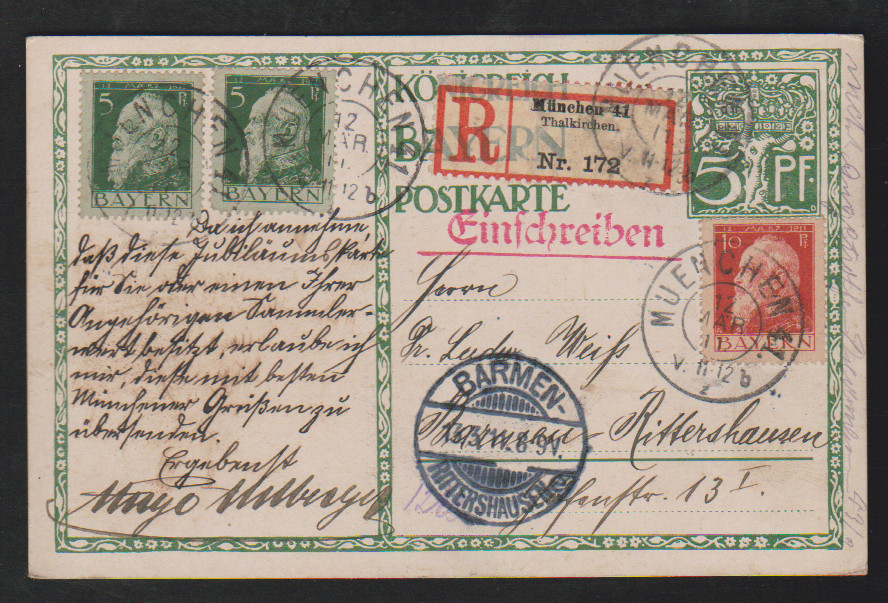 5 Pf
BAYERN
5 Pf
BAYERN
MUENCHEN
12 MÄR 11
V. 11-12 b
KÖNIGREICH
BAYERN
POSTKARTE
R
München 41
Thalkirchen.
Nr. 172
5 PF.
Einschreiben
12. MÄRZ 1911
10 Pf
BAYERN
MUENCHEN
12 MÄR 11
V. 11-12 b
Da ich annehme,
daß diese Jubiläumskarte
für Sie oder einen Ihrer
Angehörigen Sammler-
wert besitzt, erlaube ich
mir, diese mit besten
Münchener Grüßen zu
übersenden.
Ergebenst
Herrn
Dr. Weiß
Barmen-Rittershausen
13 I.
BARMEN-
13.3.11. 8-9V.
RITTERSHAUSEN